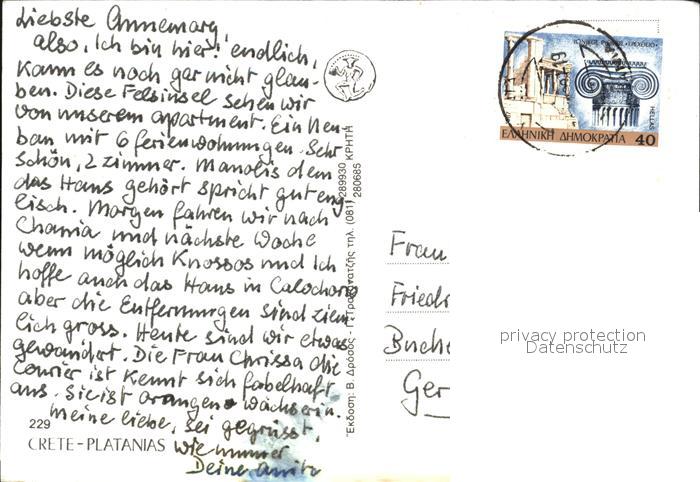 Liebste Annemarg!
also, Ich bin hier! endlich,
kann es noch gar nicht glau-
ben. Diese Felsinsel sehen wir
von unserem apartment. Ein Neu-
bau mit 6 ferienwohnungen. Sehr
schön, 2 zimmer. Manolis dem
das Haus gehört spricht gut eng-
lisch. Morgen fahren wir nach
Chania und nächste Woche
wenn möglich Knossos und Ich
hoffe auch das Haus in Calochorio
aber die Entfernungen sind ziem
lich gross. Heute sind wir etwas
gewandert. Die Frau Chrissa die
Courier ist kennt sich fabelhaft
aus. Sie ist orangen wächserin.
Meine liebe, sei gegrüsst,
wie immer
Deine Anita
229
CRETE-PLATANIAS
Έκδοση: Β. Δρόσος - τηλ. (081) 289930 ΚΡΗΤΗ
280685
ΙΩΝΙΚΟΣ
HELLAS
ΕΛΛΗΝΙΚΗ ΔΗΜΟΚΡΑΤΙΑ 40
Frau
Friedr
Buche
Ger
privacy protection
Datenschutz